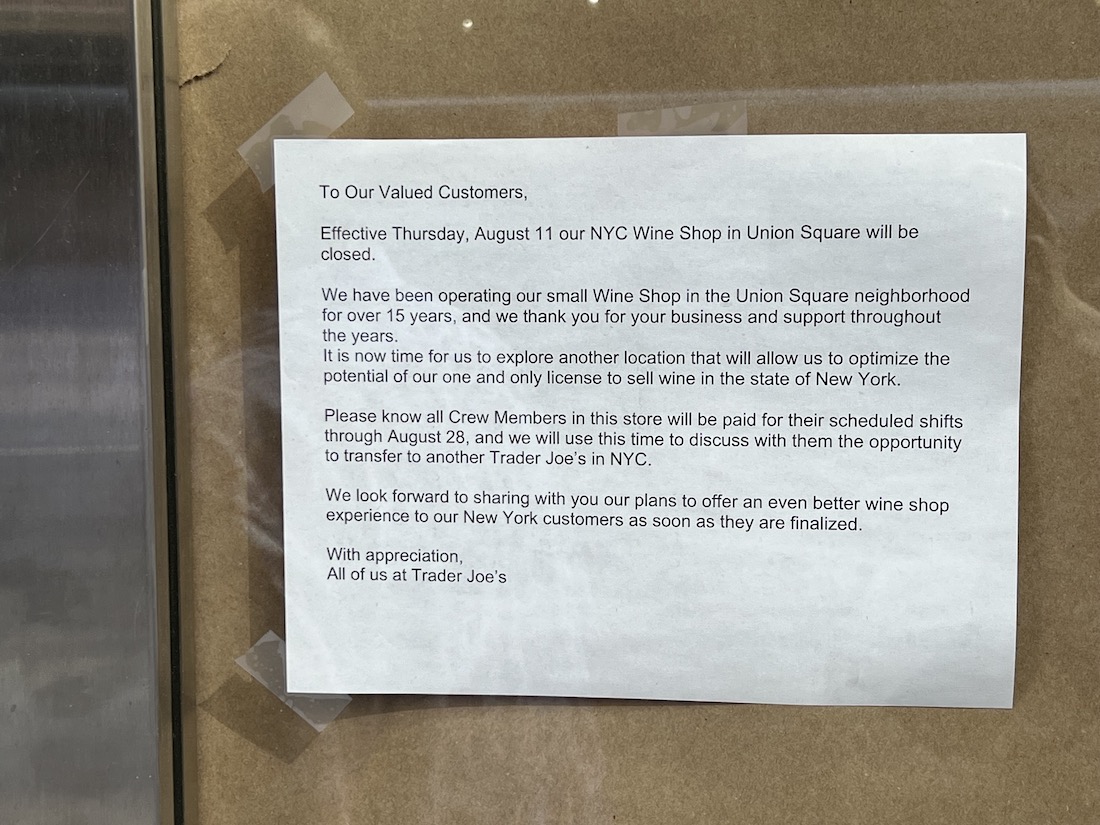 To Our Valued Customers,
Effective Thursday, August 11 our NYC Wine Shop in Union Square will be
closed.
We have been operating our small Wine Shop in the Union Square neighborhood
for over 15 years, and we thank you for your business and support throughout
the years.
It is now time for us to explore another location that will allow us to optimize the
potential of our one and only license to sell wine in the state of New York.
Please know all Crew Members in this store will be paid for their scheduled shifts
through August 28, and we will use this time to discuss with them the opportunity
to transfer to another Trader Joe's in NYC.
We look forward to sharing with you our plans to offer an even better wine shop
experience to our New York customers as soon as they are finalized.
With appreciation,
All of us at Trader Joe's